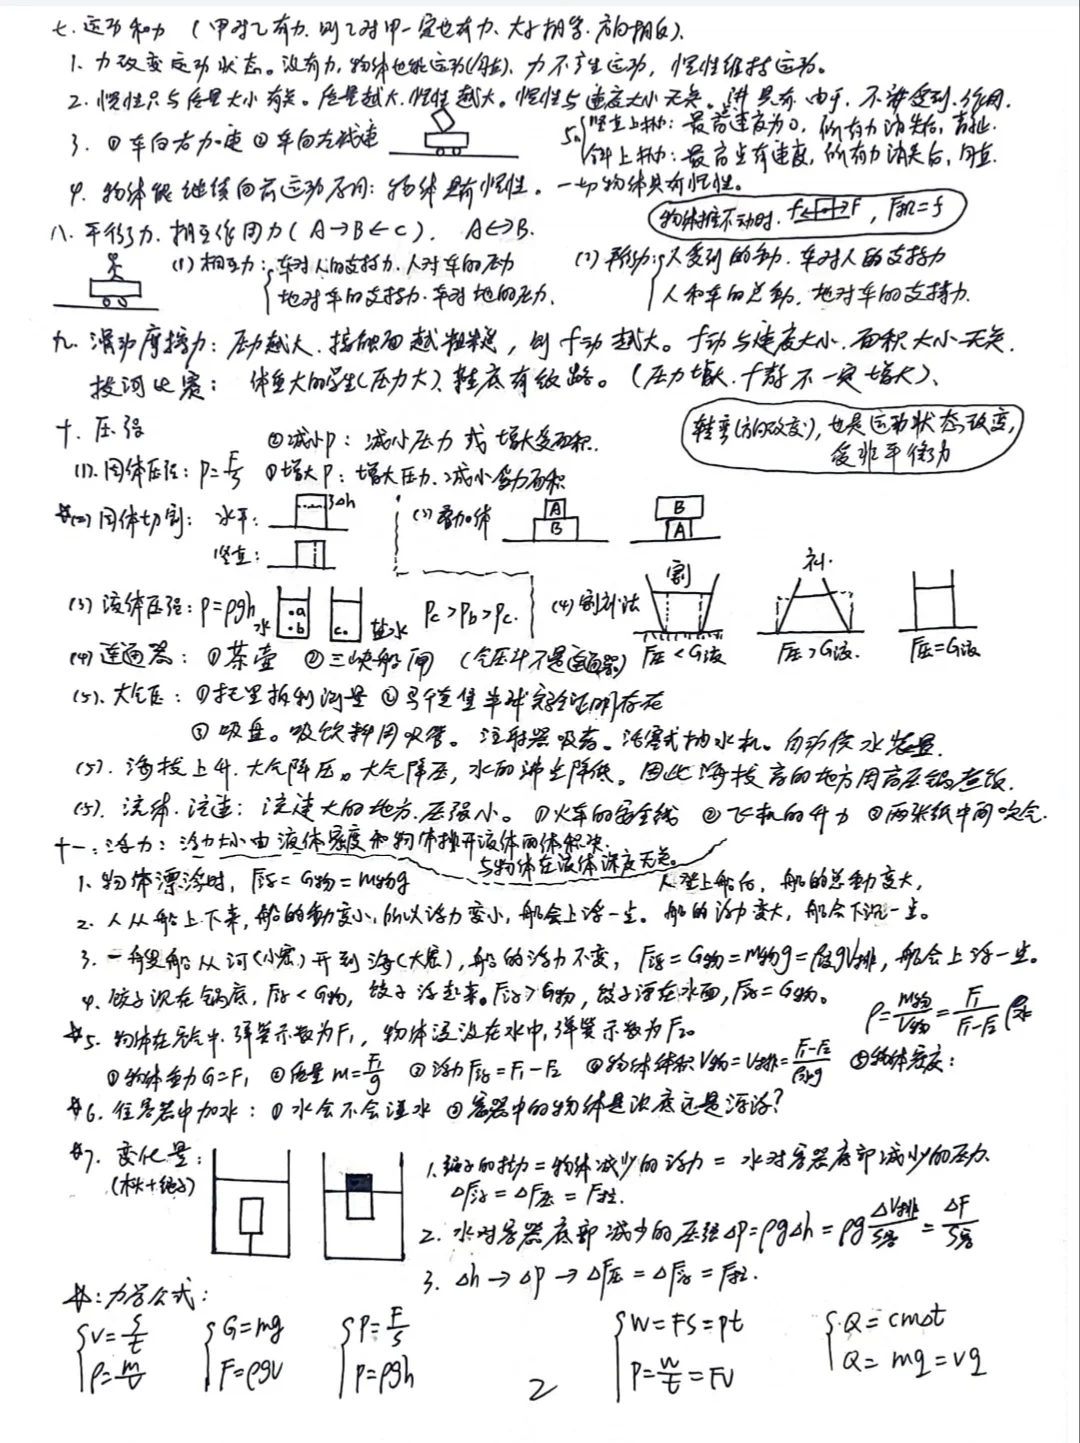 七.运动和力 (甲对乙有力.则乙对甲一定也有力.大小相等.方向相反).
1. 力改变运动状态。没有力,物体也能运动(匀直). 力不产生运动, 惯性维持运动。
2. 惯性只与质量大小有关。质量越大.惯性越大。惯性与速度大小无关。讲具有.由于.不讲受到.作用.
3. ①车向右加速 ②车向左减速
5.竖直上抛: 最高速度为0, 所有力消失后, 静止.
斜上抛: 最高点有速度, 所有力消失后, 匀直.
4. 物体能继续向前运动原因: 物体具有惯性。一切物体具有惯性。
物体推不动时. f F, F推=f
八.平衡力.相互作用力(A→B←C). A↔B.
(1)相互力: 车对人的支持力.人对车的压力
地对车的支持力.车对地的压力.
(2)平衡力: 人受到的重力.车对人的支持力
人和车的总重力.地对车的支持力.
九.滑动摩擦力: 压力越大.接触面越粗糙, 则f动越大。f动与速度大小.面积大小无关.
拔河比赛: 体重大的学生(压力大).鞋底有纹路。(压力增大.f静不一定增大).
转弯(方向改变), 也是运动状态改变,
受非平衡力
十.压强 ②减小P: 减小压力或增大受力面积.
(1).固体压强: P=F/S ①增大P: 增大压力.减小受力面积
(2)固体切割: 水平: Δh (3)叠加体 A B B A
竖直:
(3)液体压强: P=ρgh 水 a b c 盐水 Pc>Pb>Pc. (4)割补法 割 补.
F压<G液 F压>G液. F压=G液
(4)连通器: ①茶壶 ②三峡船闸 (气压计不是连通器)
(5).大气压: ①托里拆利测量 ②马德堡半球实验证明存在
③吸盘。吸饮料用吸管。注射器吸药。活塞式抽水机。自动供水装置.
(5). 海拔上升.大气降压。大气降压, 水的沸点降低。因此海拔高的地方用高压锅煮饭.
(5). 流体.流速: 流速大的地方.压强小。①火车的安全线 ②飞机的升力 ③两张纸中间吹气.
十一.浮力: 浮力大小由液体密度和物体排开液体的体积决.
与物体在液体深度无关。
1. 物体漂浮时, F浮=G物=m物g 人登上船后, 船的总重力变大,
2. 人从船上下来, 船的重力变小, 所以浮力变小, 船会上浮一点。船的浮力变大, 船会下沉一点。
3. 一艘船从河(小密)开到海(大密), 船的浮力不变, F浮=G物=m物g=ρ液gV排, 船会上浮一些。
4. 饺子沉在锅底, F浮<G物, 饺子浮起来。F浮>G物, 饺子浮在水面, F浮=G物。
5. 物体在空气中.弹簧示数为F₁, 物体浸没在水中, 弹簧示数为F₂。 ρ=m物/V物=F₁/F₁-F₂ρ水
①物体重力G=F₁ ②质量m=F₁/g ③浮力F浮=F₁-F₂ ④物体体积V物=V排=F₁-F₂/ρ水g ⑤物体密度:
6. 往容器中加水: ①水会不会溢水 ②容器中的物体是沉底还是漂浮?
7. 变化量: 1.绳子的拉力=物体减少的浮力=水对容器底部减少的压力.
(木块+绳子) ΔF浮=ΔF压=F拉.
2. 水对容器底部减少的压强ΔP=ρgΔh=ρgΔV排/S容=ΔF/S容
3. Δh→ΔP→ΔF压=ΔF浮=F拉.
力学公式:
V=S/t G=mg P=F/S W=FS=Pt Q=cmΔt
ρ=m/V F=ρgV P=ρgh P=W/t=FV Q=mq=Vq
2